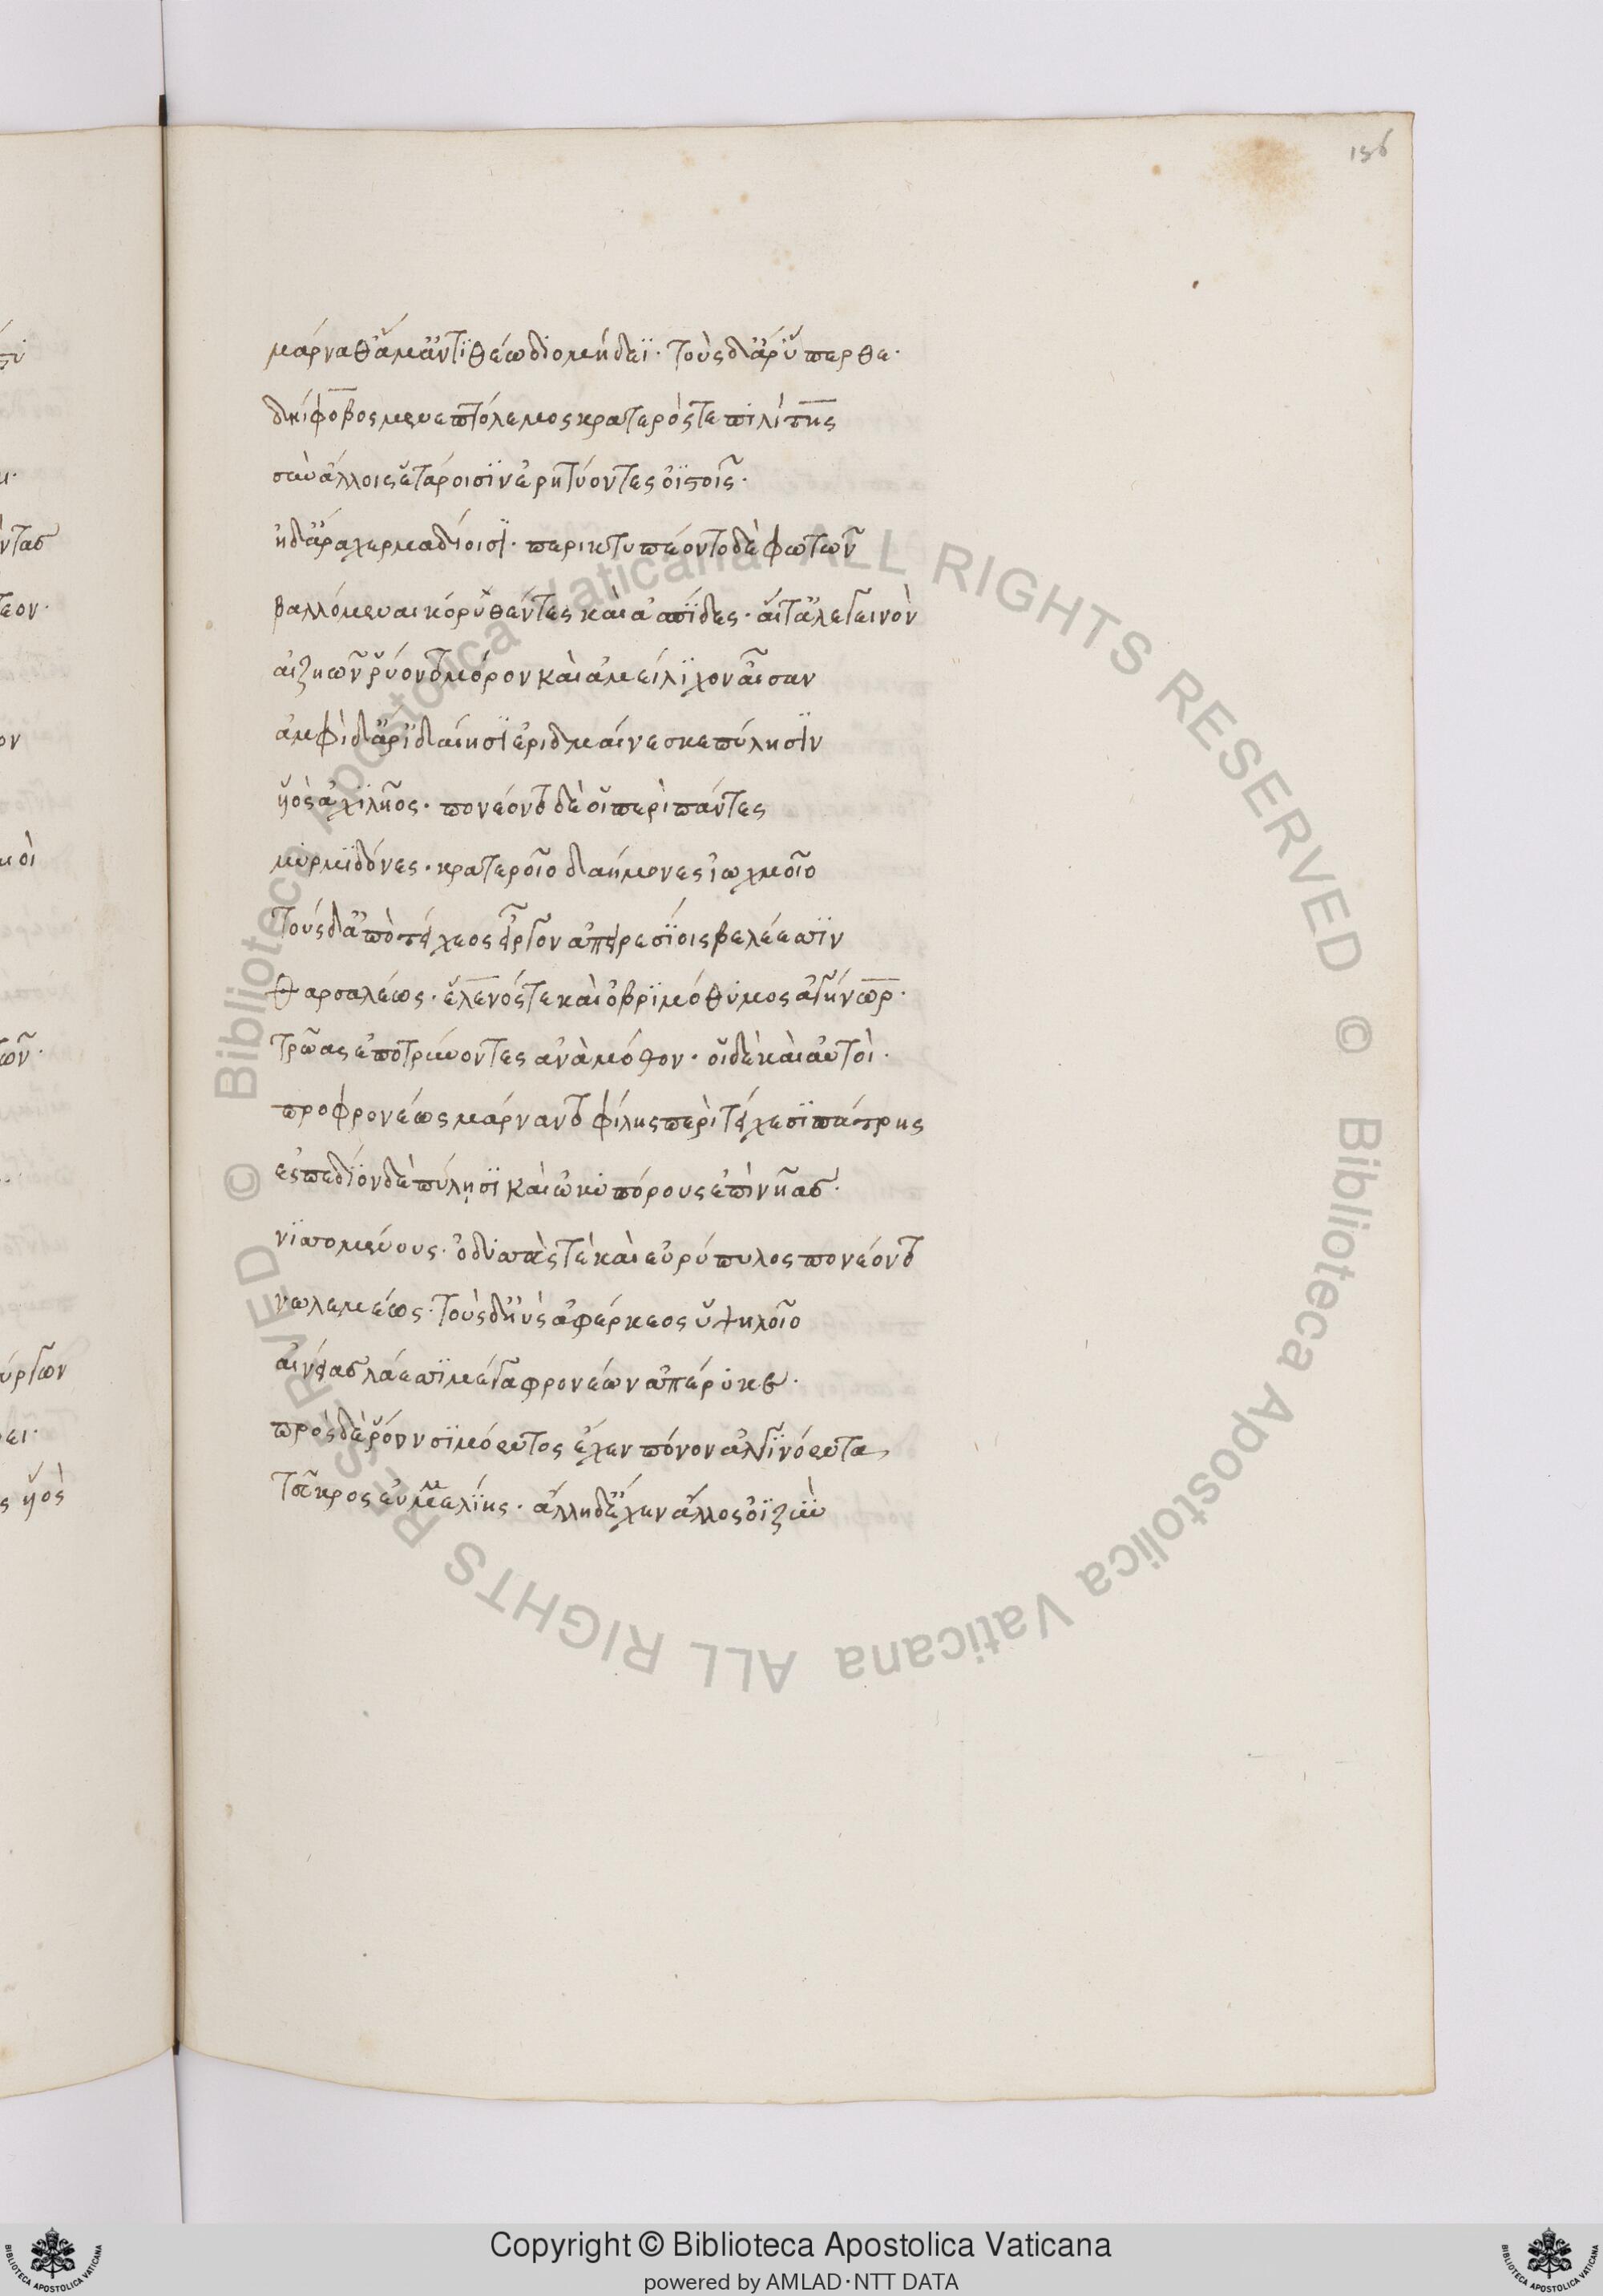 156
μάρναθ' ἅμ' ἀντιθέω διομήδεϊ· τοὺς δ' ἄρ' ὕπερθε·
δηίφοβος μενεπτόλεμος κρατερός τε πολίτης
σὺν ἄλλοις ἑτάροισιν ἐρητύοντες ὀϊστοῖς·
ἠδ' ἄρα χερμαδίοισι· περικτυπέοντο δὲ φωτῶν
βαλλόμεναι κόρυθές τε καὶ ἀσπίδες· αἵ τ' ἀλεγεινὸν
αἰζηῶν ῥύοντο μόρον καὶ ἀμείλιχον αἶσαν
ἀμφὶ δ' ἄρ' ἰδαίησι ἐριδμαίνεσκε πύλησιν
υἱὸς ἀχιλῆος· πονέοντο δὲ οἱ περὶ πάντες
μυρμιδόνες· κρατεροῖο δαήμονες ἰωχμοῖο
τοὺς δ' ἀπὸ τείχεος εἶργον ἀπειρεσίοις βελέεσσιν
θαρσαλέως· ἕλενός τε καὶ ὀβριμόθυμος ἀγήνωρ·
τρῶας ἐποτρύνοντες ἀνὰ μόθον· οἱ δὲ καὶ αὐτοὶ·
προφρονέως μάρναντο φίλης περὶ τείχεσι πάτρης
ἐς πεδίον δὲ πύλησι καὶ ὠκυπόρους ἐπὶ νῆας·
νισσομένους· ὀδυσσεὺς τε καὶ εὐρύπυλος πονέοντο
νωλεμέως· τοὺς δ' ἠὺς ἀφ' ἕρκεος ὑψηλοῖο
αἰνείας λάεσσι μέγα φρονέων ἀπέρυκε·
πρὸς δὲ ῥόον σιμόεντος ἔχεν πόνον ἀλγινόεντα
τεῦκρος ἐυμμελίης· ἄλλη δ' ἔχεν ἄλλος ὀϊζὺν
Copyright © Biblioteca Apostolica Vaticana
powered by AMLAD·NTT DATA